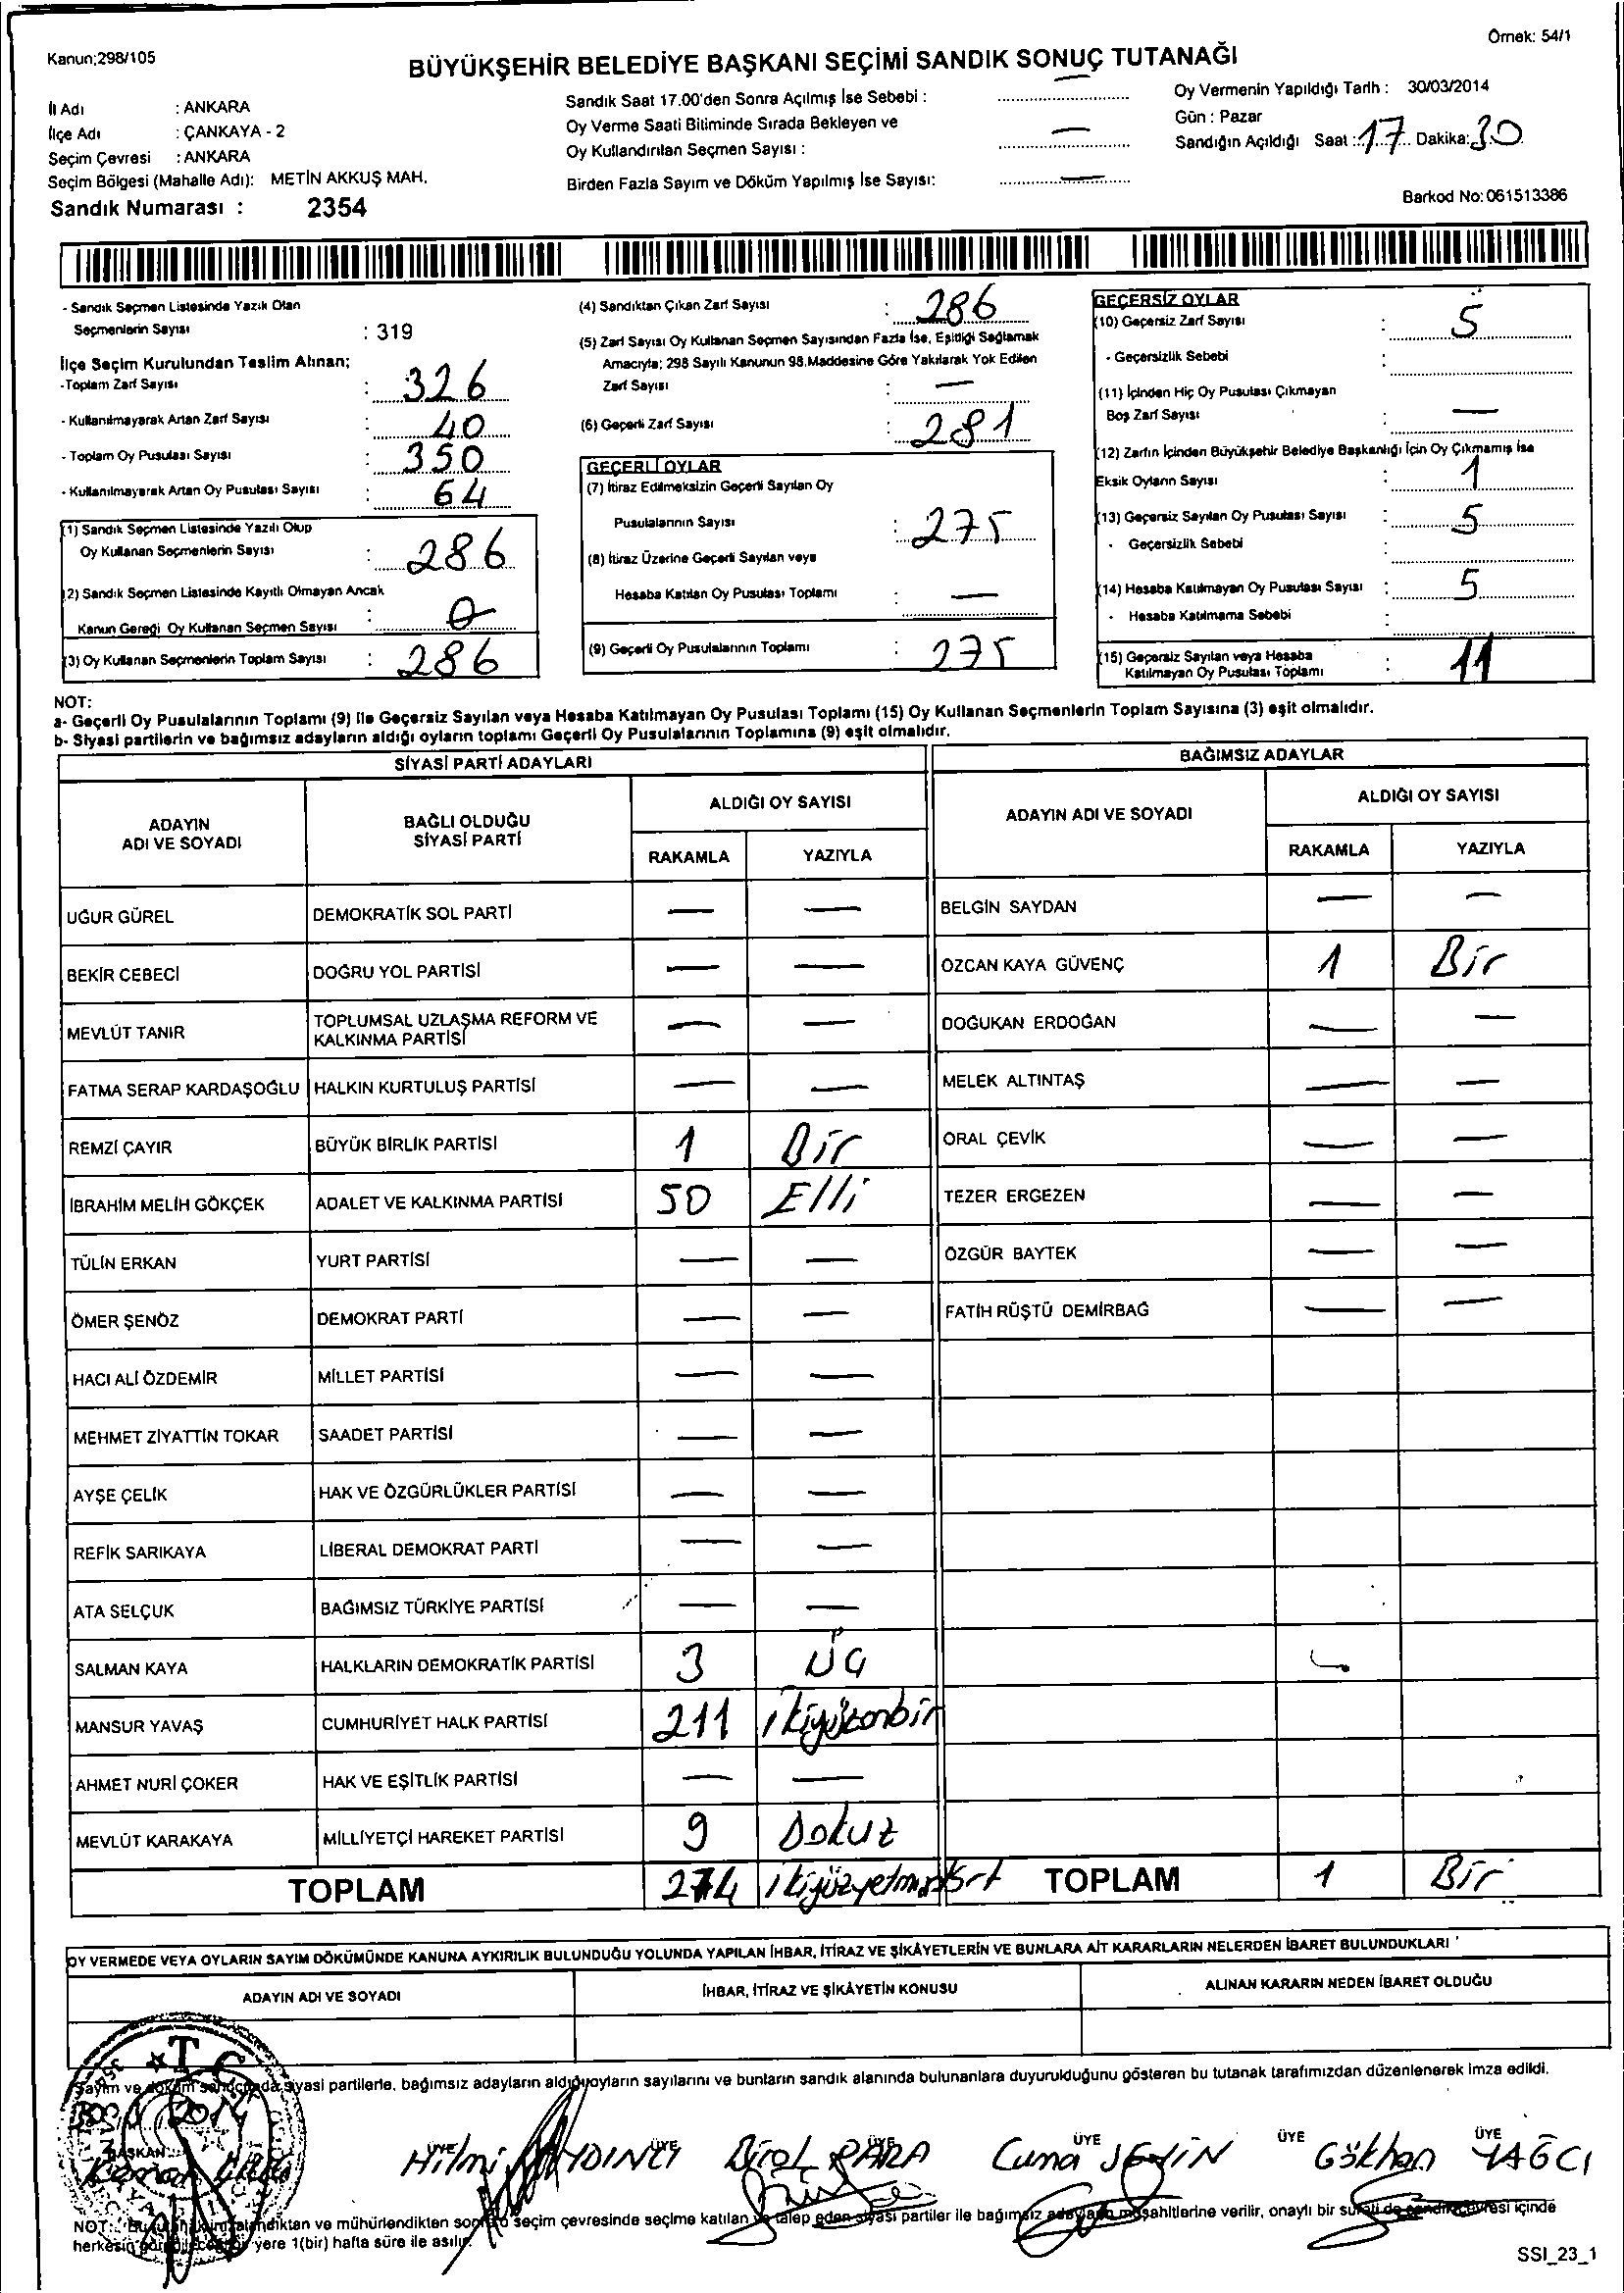 Kanun;298/105
Örnek: 54/1
BÜYÜKŞEHİR BELEDİYE BAŞKANI SEÇİMİ SANDIK SONUÇ TUTANAĞI
İl Adı : ANKARA
İlçe Adı : ÇANKAYA - 2
Seçim Çevresi : ANKARA
Seçim Bölgesi (Mahalle Adı): METİN AKKUŞ MAH.
Sandık Numarası : 2354
Sandık Saat 17.00'den Sonra Açılmış İse Sebebi : —
Oy Verme Saati Bitiminde Sırada Bekleyen ve
Oy Kullandırılan Seçmen Sayısı : —
Birden Fazla Sayım ve Döküm Yapılmış İse Sayısı: —
Oy Vermenin Yapıldığı Tarih : 30/03/2014
Gün : Pazar
Sandığın Açıldığı Saat : 17 Dakika: 30
Barkod No: 061513386
- Sandık Seçmen Listesinde Yazılı Olan
Seçmenlerin Sayısı : 319
İlçe Seçim Kurulundan Teslim Alınan;
-Toplam Zarf Sayısı : 326
- Kullanılmayarak Artan Zarf Sayısı : 40
- Toplam Oy Pusulası Sayısı : 350
- Kullanılmayarak Artan Oy Pusulası Sayısı : 64
(1) Sandık Seçmen Listesinde Yazılı Olup
Oy Kullanan Seçmenlerin Sayısı : 286
(2) Sandık Seçmen Listesinde Kayıtlı Olmayan Ancak
Kanun Gereği Oy Kullanan Seçmen Sayısı : 0
(3) Oy Kullanan Seçmenlerin Toplam Sayısı : 286
(4) Sandıktan Çıkan Zarf Sayısı : 286
(5) Zarf Sayısı Oy Kullanan Seçmen Sayısından Fazla İse, Eşitliği Sağlamak
Amacıyla; 298 Sayılı Kanunun 98.Maddesine Göre Yakılarak Yok Edilen
Zarf Sayısı : —
(6) Geçerli Zarf Sayısı : 281
GEÇERLİ OYLAR
(7) İtiraz Edilmeksizin Geçerli Sayılan Oy
Pusulalarının Sayısı : 275
(8) İtiraz Üzerine Geçerli Sayılan veya
Hesaba Katılan Oy Pusulası Toplamı : —
(9) Geçerli Oy Pusulalarının Toplamı : 275
GEÇERSİZ OYLAR
(10) Geçersiz Zarf Sayısı : 5
- Geçersizlik Sebebi :
(11) İçinden Hiç Oy Pusulası Çıkmayan
Boş Zarf Sayısı : —
(12) Zarfın İçinden Büyükşehir Belediye Başkanlığı İçin Oy Çıkmamış İse
Eksik Oyların Sayısı : 1
(13) Geçersiz Sayılan Oy Pusulası Sayısı : 5
- Geçersizlik Sebebi :
(14) Hesaba Katılmayan Oy Pusulası Sayısı : 5
- Hesaba Katılmama Sebebi :
(15) Geçersiz Sayılan veya Hesaba
Katılmayan Oy Pusulası Toplamı : 11
NOT:
a- Geçerli Oy Pusulalarının Toplamı (9) ile Geçersiz Sayılan veya Hesaba Katılmayan Oy Pusulası Toplamı (15) Oy Kullanan Seçmenlerin Toplam Sayısına (3) eşit olmalıdır.
b- Siyasi partilerin ve bağımsız adayların aldığı oyların toplamı Geçerli Oy Pusulalarının Toplamına (9) eşit olmalıdır.
SİYASİ PARTİ ADAYLARI
ADAYIN ADI VE SOYADI
BAĞLI OLDUĞU SİYASİ PARTİ
ALDIĞI OY SAYISI
RAKAMLA YAZIYLA
UĞUR GÜREL DEMOKRATİK SOL PARTİ — —
BEKİR CEBECİ DOĞRU YOL PARTİSİ — —
MEVLÜT TANIR TOPLUMSAL UZLAŞMA REFORM VE KALKINMA PARTİSİ — —
FATMA SERAP KARDAŞOĞLU HALKIN KURTULUŞ PARTİSİ — —
REMZİ ÇAYIR BÜYÜK BİRLİK PARTİSİ 1 Bir
İBRAHİM MELİH GÖKÇEK ADALET VE KALKINMA PARTİSİ 50 Elli
TÜLİN ERKAN YURT PARTİSİ — —
ÖMER ŞENÖZ DEMOKRAT PARTİ — —
HACI ALİ ÖZDEMİR MİLLET PARTİSİ — —
MEHMET ZİYATTİN TOKAR SAADET PARTİSİ — —
AYŞE ÇELİK HAK VE ÖZGÜRLÜKLER PARTİSİ — —
REFİK SARIKAYA LİBERAL DEMOKRAT PARTİ — —
ATA SELÇUK BAĞIMSIZ TÜRKİYE PARTİSİ — —
SALMAN KAYA HALKLARIN DEMOKRATİK PARTİSİ 3 Üç
MANSUR YAVAŞ CUMHURİYET HALK PARTİSİ 211 ikiyüzonbir
AHMET NURİ ÇOKER HAK VE EŞİTLİK PARTİSİ — —
MEVLÜT KARAKAYA MİLLİYETÇİ HAREKET PARTİSİ 9 Dokuz
TOPLAM 274
BAĞIMSIZ ADAYLAR
ADAYIN ADI VE SOYADI
ALDIĞI OY SAYISI
RAKAMLA YAZIYLA
BELGİN SAYDAN — —
ÖZCAN KAYA GÜVENÇ 1 Bir
DOĞUKAN ERDOĞAN — —
MELEK ALTINTAŞ — —
ORAL ÇEVİK — —
TEZER ERGEZEN — —
ÖZGÜR BAYTEK — —
FATİH RÜŞTÜ DEMİRBAĞ — —
TOPLAM 1 Bir
OY VERMEDE VEYA OYLARIN SAYIM DÖKÜMÜNDE KANUNA AYKIRILIK BULUNDUĞU YOLUNDA YAPILAN İHBAR, İTİRAZ VE ŞİKÂYETLERİN VE BUNLARA AİT KARARLARIN NELERDEN İBARET BULUNDUKLARI
ADAYIN ADI VE SOYADI
İHBAR, İTİRAZ VE ŞİKÂYETİN KONUSU
ALINAN KARARIN NEDEN İBARET OLDUĞU
T.C.
Sayım ve döküm sonucunda siyasi partilerle, bağımsız adayların aldığı oyların sayılarını ve bunların sandık alanında bulunanlara duyurulduğunu gösteren bu tutanak tarafımızdan düzenlenerek imza edildi.
BAŞKAN ÜYE ÜYE ÜYE ÜYE ÜYE ÜYE
Hilmi AYDINLI Birol PARA Cuma Gökhan YAĞCI
NOT: Bu tutanak imzalandıktan ve mühürlendikten sonra o seçim çevresinde seçime katılan ve talep eden siyasi partiler ile bağımsız adayların müşahitlerine verilir, onaylı bir sureti de sandık çevresi içinde
herkesin görebileceği bir yere 1(bir) hafta süre ile asılır.
SSI_23_1